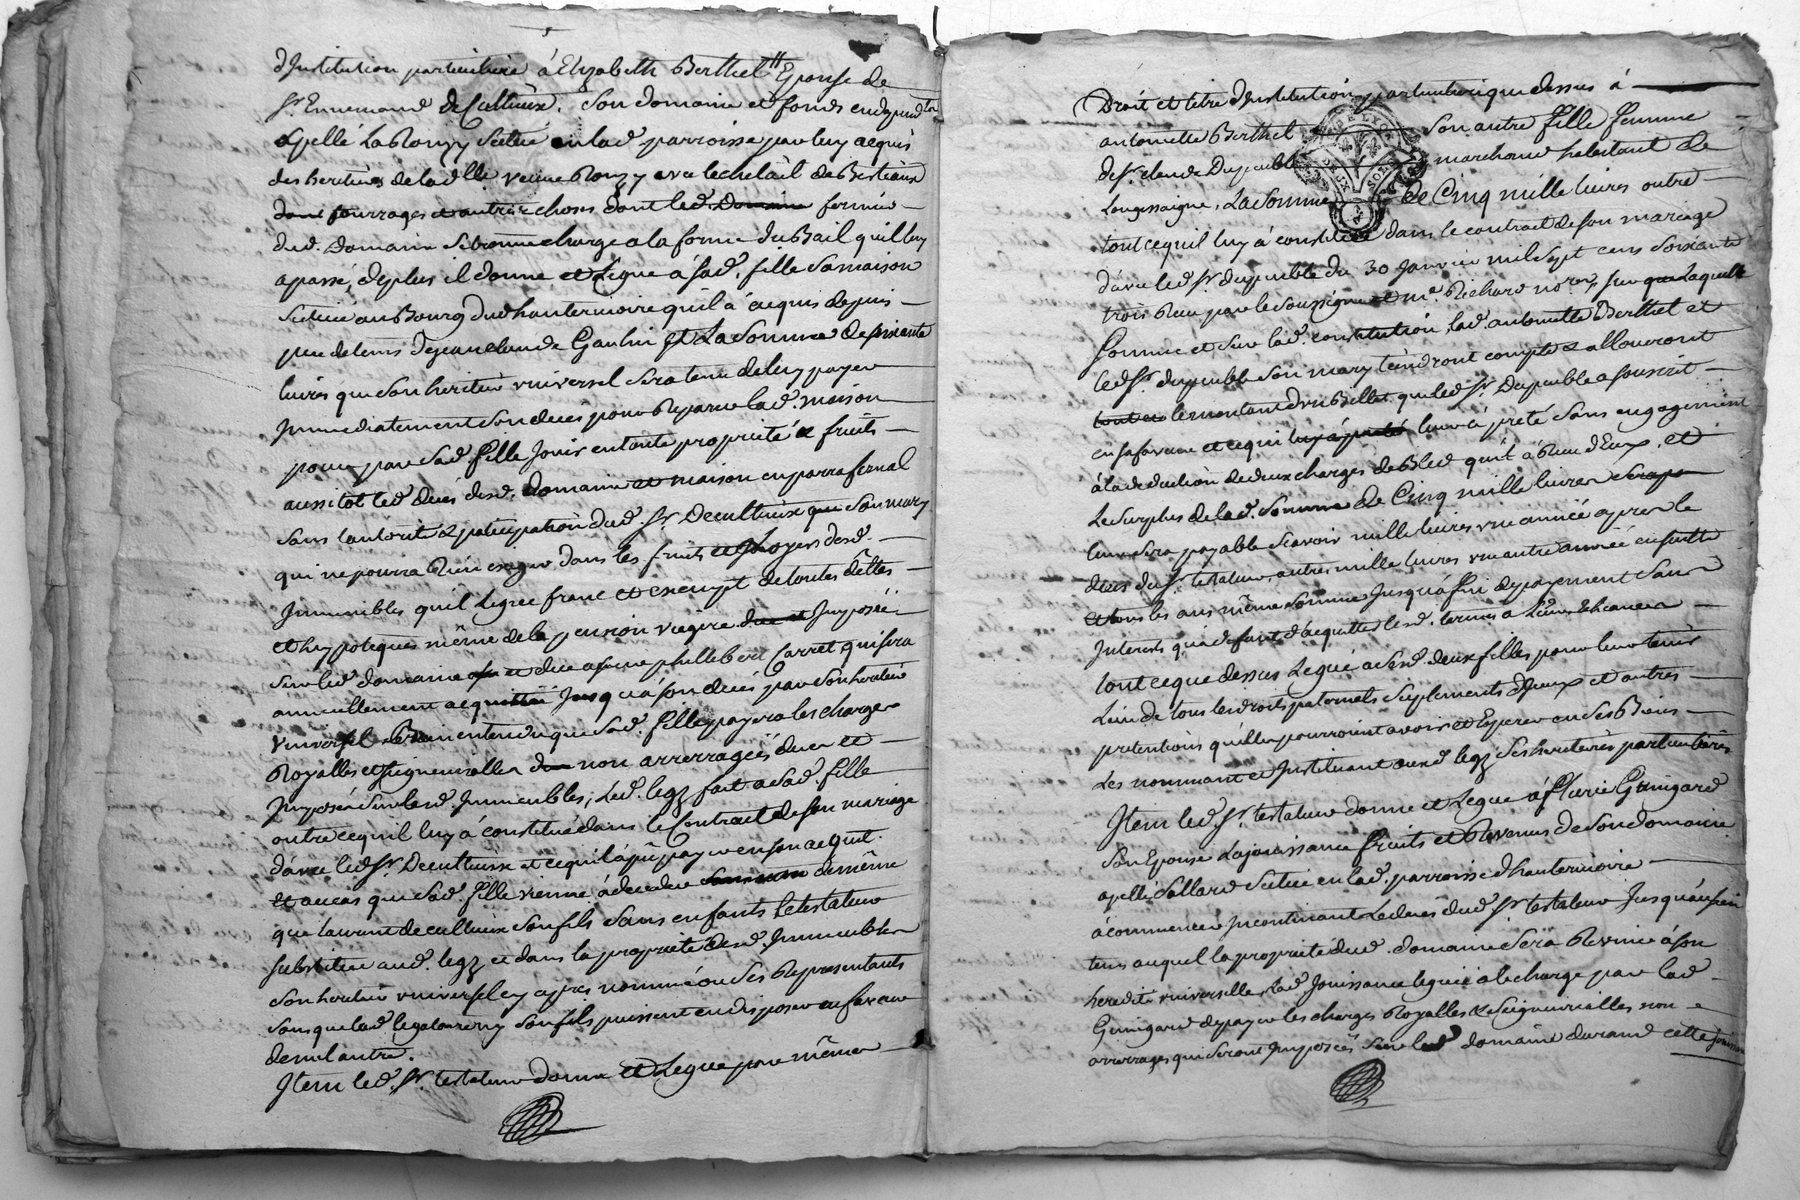 d'Institution particuliere á Elizabeth Berthet Epouse de
Sr. Ennemond Decultieux. Son domaine et fonds en dependts
apellé La Ronzy Scitué en lad parroisse par luy acquis
des heritiers de lad. veuve Ronzy avec le chetail de Bestiaux
fourrages et autres choses dont led. fermier
dud. Domaine se trouve chargé a la forme du Bail qu'il luy
a passé, de plus il donne et Legue á sad. fille sa maison
Scituée au Bourg dud hauterivoire qu'il á acquis depuis
peu de tems de jean claude Gaulin et La Somme de soixante
livres que son heritier universel sera tenu de luy payer
Immediatement son deces pour Reparer lad. maison
pour par sad. fille Jouir en toute proprieté & fruits
aussitot led. deces desd. domaine et maison en parrafernal
sans l'autorité & paticipation dud. Sr. Decultieux son mary
qui ne pourra Rien exiger dans les fruits et Loyers desd.
Immeubles qu'il Legue franc et exempt de toutes dêttes
et hypoteques même de la pension viagere Imposée
sur led. domaine et due a philiberte Carret qui sera
annuellement acquittée Jusqu'á son deces par son heritier
universel Bien entendu que sad. fille payera les charges
Royalles et seigneurialles non arrerragées dues et
Imposées sur lesd. Immeubles, Led. legz fait a sad. fille
outre ce quil luy á constitué dans le Contract de son mariage
d'avec led Sr. Decultieux et ce quil á pû payer en son acquit.
et au cas que sad. fille vienne á deceder de même
que Laurent decultieux son fils sans enfants Le testateur
substitue aud. legz et dans la proprieté desd. Immeubles
son heritier universel cy apres nommé ou ses Representants
sans que lad. legataire ny son fils puissent en disposer en faveur
de nul autre.
Item led. Sr. testateur donne et Legue par même
Droit et titre d'Institution particuliere que dessus á
antoinette Berthet son autre fille femme
de Sr. claude Dupeuble marchand habitant de
Longessaigne, La Somme de Cinq mille livres outre
tout ce quil luy á constitué dans le contract de son mariage
d'avec led Sr. dupeuble du 30 Janvier mil Sept cens Soixante
trois Reçu par le Soussigné et me. Richard nore, Sur Laquelle
somme et sur lad. constitution Lad. antoinette Berthet et
led Sr. dupeuble son mary tiendront compte & alloueront
le montant d'un Billet que led Sr. Dupeuble a souscrit
en sa faveur et ce qui leur á preté sans engagement
á la deduction de deux charges de Bled quil á Reçu d'Eux. et
Le Surplus de lad. Somme de Cinq mille livres
leur sera payable scavoir mille livres une année apres le
deces du Sr. testateur, autres mille livres une autre année ensuitte
et tous les ans même somme Jusqu'á fin de payement sans
Interets qu'á defaut d'acquitter lesd. termes a leurs echeances
tout ce que dessus Legué a sesd. deux filles pour leur tenir
Lieu de tous leurs droits paternels suplements d'yceux et autres
pretentions qu'elles pourroient avoir et Esperer en ses Biens
Les nommant et Instituant auxd legz ses heritieres particulieres
Item led Sr. testateur donne et Legue á flurie Guingard
son Epouse La jouissance fruits et Revenus de son domaine
apellé Sallard Scitué en lad. parroisse d'hauterivoire
á commencer Incontinant Le deces dud Sr. testateur Jusqu'au
tems auquel la proprieté dud. domaine Sera Reunie á son
heredité universelle, Lad Jouissance leguée á la charge par lad
Guingard de payer les charges Royalles & Seigneurialles non
arrerragées qui seront Imposées sur led domaine durand cette Jouissance